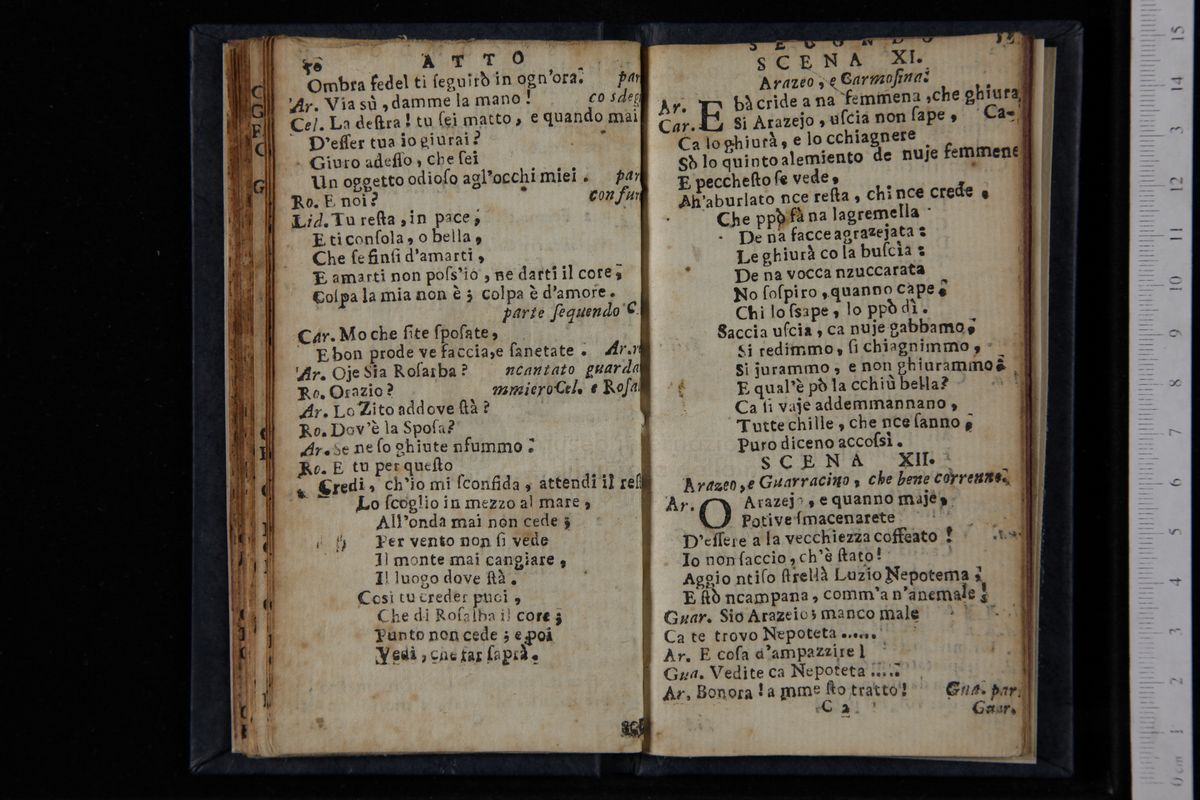 50 ATTO
Ombra fedel ti ſeguirò in ogn'ora. par
Ar. Via sù, damme la mano! co sdeg
Cel. La deſtra! tu ſei matto, e quando mai
D'eſſer tua io giurai?
Giuro adeſſo, che ſei
Un oggetto odioſo agl'occhi miei. par
Ro. E noi? confuſ
Lid. Tu reſta, in pace;
E ti conſola, o bella,
Che ſe finſi d'amarti,
E amarti non poſs'io, ne darti il core;
Colpa la mia non è; colpa è d'amore.
parte ſequendo C.
Car. Mo che ſite ſpoſate,
E bon prode ve faccia, e ſanetate. Ar. r
Ar. Oje Sia Roſarba? ncantato guarda
Ro. Orazio? mmiero Cel. e Roſal
Ar. Lo Zito addove ſtà?
Ro. Dov'è la Spoſa?
Ar. Se ne ſo ghiute nſummo:
Ro. E tu per queſto
Credi, ch'io mi ſconfida, attendi il reſt
Lo ſcoglio in mezzo al mare,
All'onda mai non cede;
Per vento non ſi vede
Il monte mai cangiare,
Il luogo dove ſtà.
Cosi tu creder puoi,
Che di Roſalba il core;
Punto non cede; e poi
Vedi, che far ſaprà.
SECONDO
SCENA XI.
Arazeo, e Carmoſina.
Ar. Ebà cride a na femmena, che ghiura
Car. Si Arazejo, uſcia non ſape, Ca-
Ca lo ghiurà, e lo cchiagnere
Sò lo quinto alemiento de nuje femmene
E pecchesto ſe vede,
Ah'aburlato nce reſta, chi nce crede,
Che ppò fà na lagremella
De na facce agrazejata:
Le ghiurà co la buſcìa:
De na vocca nzuccarata
No ſoſpiro, quanno cape,
Chi lo ſsape, lo ppò dì.
Saccia uſcia, ca nuje gabbamo,
Si redimmo, ſi chiagnimmo,
Si jurammo, e non ghiurammo:
E qual'è pò la cchiù bella?
Ca ſi vaje addemmannano,
Tutte chille, che nce ſanno,
Puro diceno accoſsì.
SCENA XII.
Arazeo, e Guarracino, che bene correnno.
Ar. O Arazejo, e quanno maje,
Potive ſmacenarete
D'eſſere a la vecchiezza coffeato!
Io non ſaccio, ch'è ſtato!
Aggio ntiſo ſtrellà Luzio Nepotema;
E ſtò ncampana, comm'a n'anemale!
Guar. Sio Arazeio; manco male
Ca te trovo Nepoteta ......
Ar. E coſa d'ampazzire!
Gua. Vedite ca Nepoteta .....
Ar. Bonora! a mme ſto tratto! Gua. par.
C 2 Guar.